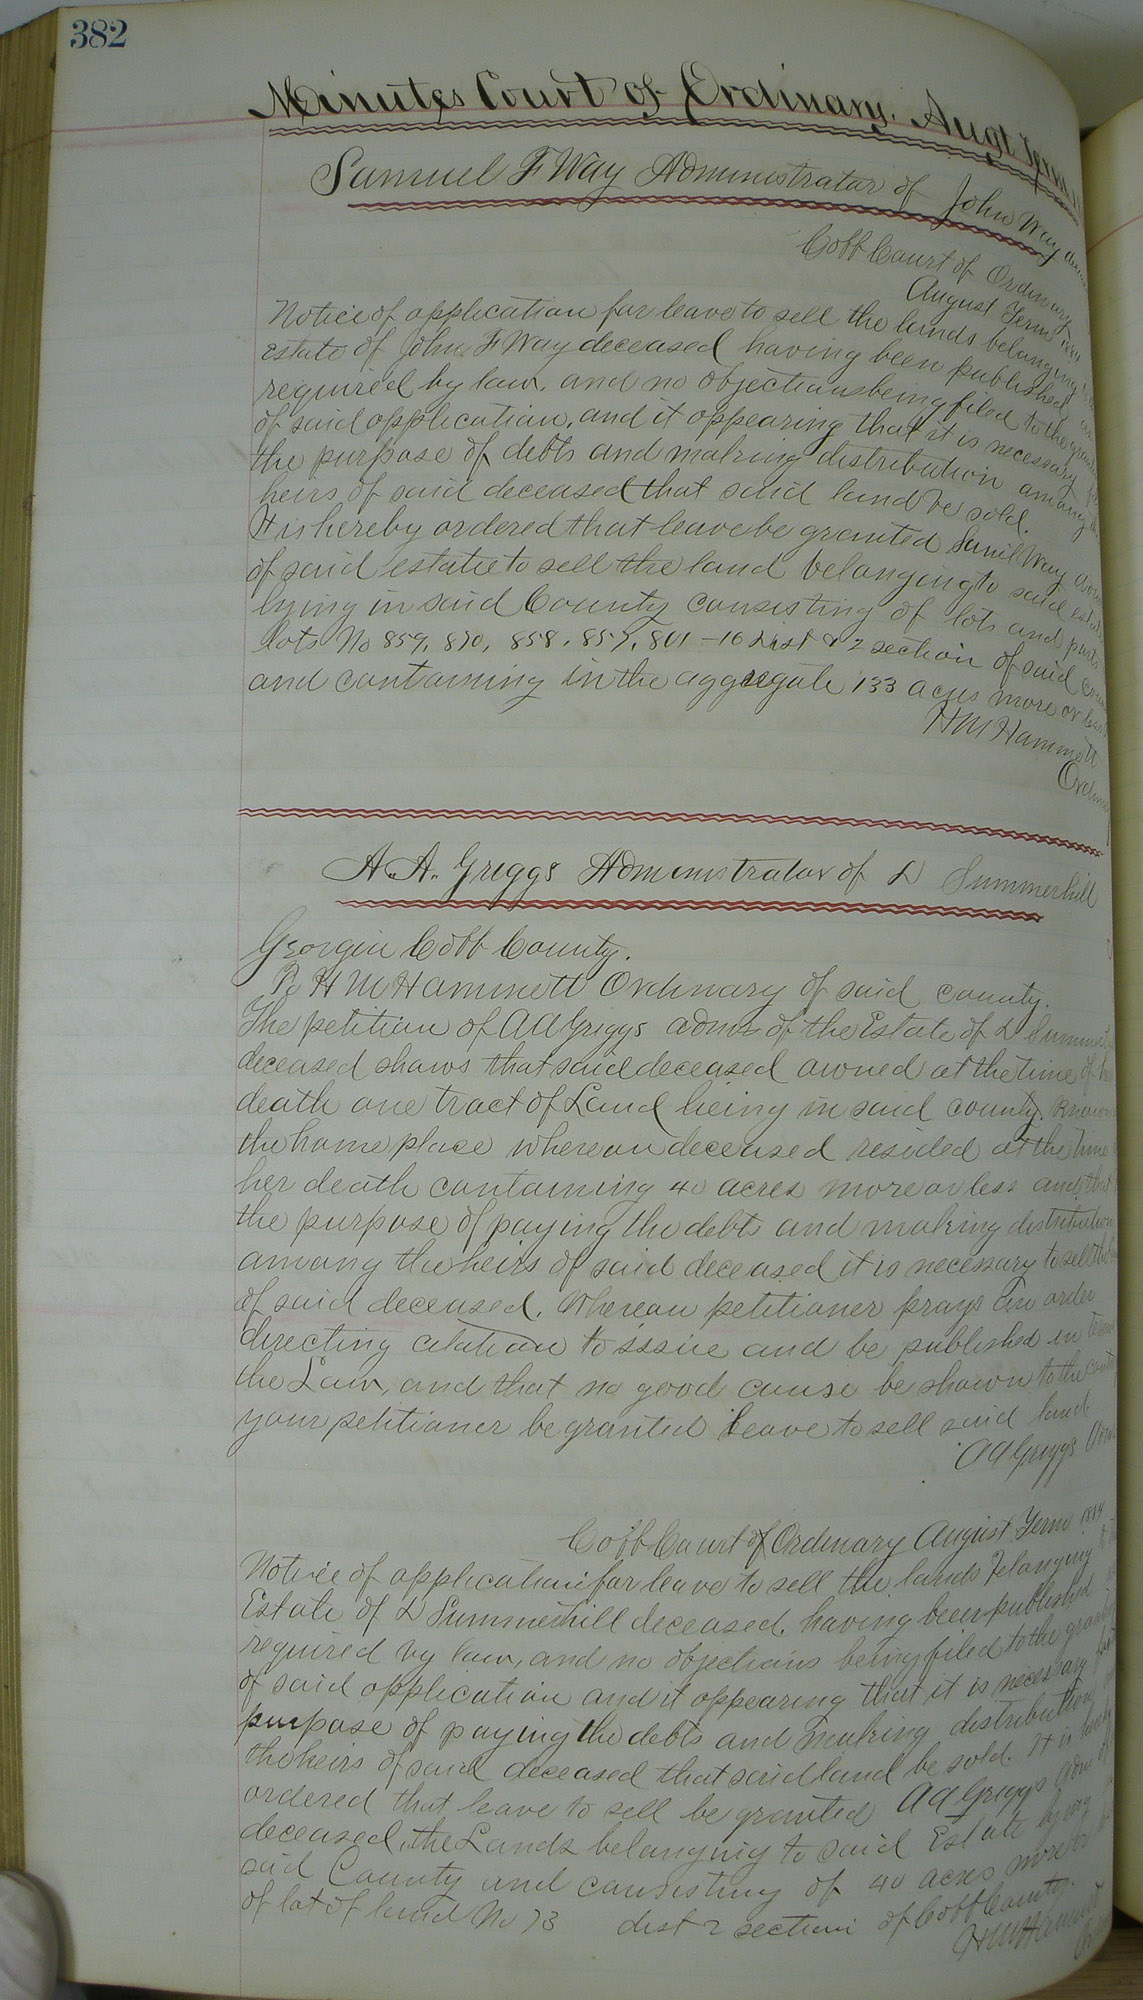 382
Minutes Court of Ordinary. Augt Term
Samuel F Way Administrator of John Way
Cobb Court of Ordinary
August Term
Notice of application for leave to sell the lands belonging
Estate of John F Way deceased having been published
required by law, and no objections being filed to the
of said application, and it appearing that it is necessary
the purpose of debts and making distribution among
heirs of said deceased that said land be sold.
It is hereby ordered that leave be granted Saml Way
of said estate to sell the land belonging to said
lying in said County consisting of lots and parts
lots No 859, 870, 858, 857, 801 - 16 Dist & 2 section of said
and containing in the aggregate 133 acres more or less
H M Hammett
A. A. Griggs Administrator of D Summerhill
Georgia Cobb County.
To H M Hammett Ordinary of said county.
The petition of A A Griggs admr of the Estate of D
deceased shows that said deceased owned at the time of
death one tract of Land lieing in said county. Known
the home place whereon deceased resided at the time
her death containing 40 acres more or less and that
the purpose of paying the debts and making distribution
among the heirs of said deceased it is necessary to sell
of said deceased. Whereon petitioner prays an order
directing citation to issue and be published in terms
the Law, and that no good cause be shown to the
your petitioner be granted leave to sell said land
A A Griggs
Cobb Court of Ordinary August Term 1884
Notice of application for leave to sell the lands belonging
Estate of D Summerhill deceased. having been published
required by law, and no objections being filed to the
of said application and it appearing that it is necessary
purpose of paying the debts and making distribution
the heirs of said deceased that said land be sold. It is
ordered that leave to sell be granted A A Griggs
deceased, the Lands belonging to said Estate lying
said County and consisting of 40 acres more or
of lot of land No 73 dist 2 section of Cobb County.
H M Hammett